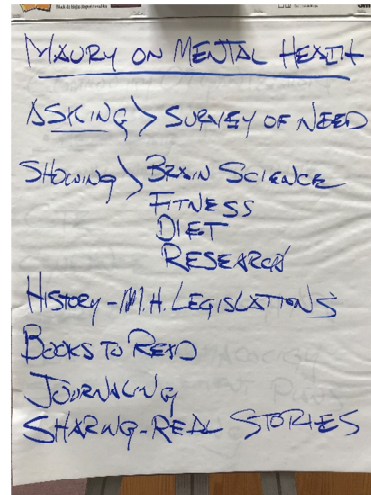 MAURY ON MENTAL HEALTH
ASKING > SURVEY OF NEED
SHOWING > BRAIN SCIENCE
FITNESS
DIET
RESEARCH
HISTORY - M.H. LEGISLATIONS
BOOKS TO READ
JOURNALING
SHARING - REAL STORIES